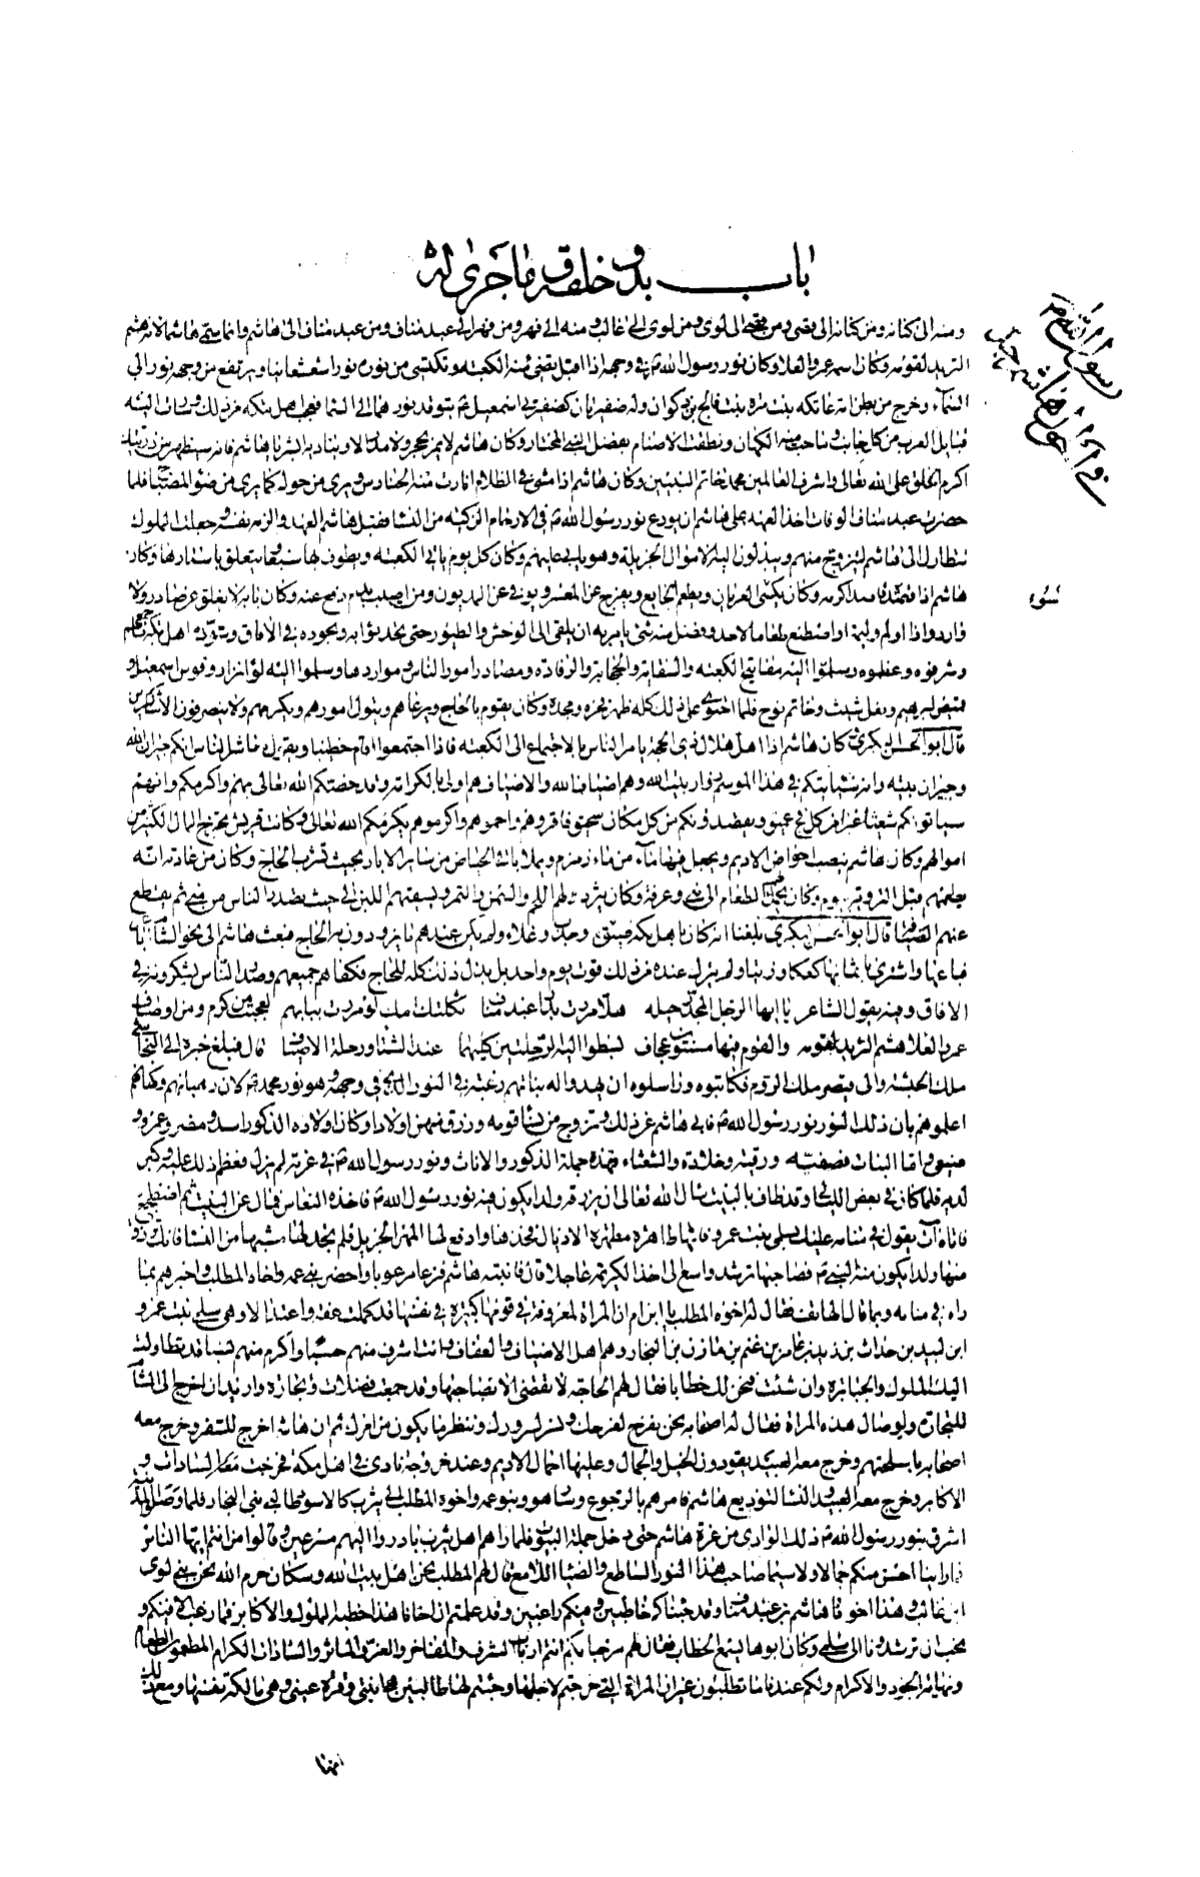 باب بدو خلقه وما جرى له
ومنه الى كنانة ومن كنانة الى قصي ومن قصي الى لوى ومن لوى الى غالب ومنه الى فهر ومن فهر الى عبد مناف ومن عبد مناف الى هاشم وانما سمي هاشما لانه هشم
الثريد لقومه وكان اسمه عمرو العلا وكان نور رسول الله ص في وجهه اذا اقبل تضيء منه الكعبة وتكتسي من نوره نورا شعشعانيا ويرتفع من وجهه نور الى
السماء وخرج من بطن امه عاتكة بنت مرة بنت فالج بن ذكوان وله ضفيرتان كضفيرتي اسمعيل ع يتوقد نورهما الى السماء فعجب اهل مكة من ذلك وسارت اليه
قبايل العرب من كل جانب وماجت منه الكهان ونطقت الاصنام بفضل النبي المختار وكان هاشم لا يمر بحجر ولا مدر الا ويناديه ابشر يا هاشم فانه سيظهر من ذريتك
اكرم الخلق على الله تعالى واشرف العالمين محمد خاتم النبيين وكان هاشم اذا مشى في الظلام انارت منه الحنادس ويرى من حوله كما يرى من ضوء المصباح فلما
حضرت عبد مناف الوفاة اخذ العهد على هاشم ان يودع نور رسول الله ص في الارحام الزكية من النساء فقبل هاشم العهد والزمه نفسه وجعلت الملوك
تتطاول الى هاشم ليتزوج منهم ويبذلون اليه الاموال الجزيلة وهو يابى عليهم وكان كل يوم ياتي الكعبة ويطوف بها سبعا ويتعلق باستارها وكان
هاشم اذا قصده قاصد اكرمه وكان يكسى العريان ويطعم الجايع ويفرج عن المعسر ويوفي عن المديون ومن اصيب بدم دفع عنه وكان بابه لا يغلق عن صادر ولا
وارد واذا اولم وليمة او اصطنع طعاما لاحد وفضل منه شيء يامر به ان يلقى الى الوحش والطيور حتى تحدثوا به وبجوده في الافاق وسوده اهل مكة باجمعهم
وشرفوه وعظموه وسلموا اليه مفاتيح الكعبة والسقاية والحجابة والرفادة ومصادر امور الناس ومواردها وسلموا اليه لواء نزار وقوس اسمعيل و
قميص ابرهيم ونعل شيث وخاتم نوح فلما احتوى على ذلك كله ظهر فخره ومجده وكان يقوم بالحاج ويرعاهم ويتولى امورهم ويكرمهم ولا ينصرفون الا شاكرين
قال ابو الحسن البكري كان هاشم اذا اهل هلال ذي الحجة يامر الناس بالاجتماع الى الكعبة فاذا اجتمعوا قام خطيبا ويقول معاشر الناس انكم جيران الله
وجيران بيته وانه سياتيكم في هذا الموسم زوار بيت الله وهم اضياف الله والاضياف هم اولى بالكرامة وقد خصكم الله تعالى بهم واكرمكم وانهم
سياتونكم شعثا غبرا من كل فج عميق ويقصدونكم من كل مكان سحيق فاقروهم واحموهم واكرموهم يكرمكم الله تعالى وكانت قريش تخرج المال الكثير من
اموالهم وكان هاشم ينصب احواض الاديم ويجعل فيها ماء من ماء زمزم ويملا باقي الحياض من ساير الابار بحيث تشرب الحاج وكان من عادته انه
يطعمهم قبل التروية بيوم وكان يحمل الطعام الى منى وعرفة وكان يثرد لهم اللحم والسمن والتمر ويسقيهم اللبن الى حيث تصدر الناس من منى ثم يقطع
عنهم الضيافة قال ابو الحسن البكري بلغنا انه كان باهل مكة ضيق وجدب وغلاء ولم يكن عندهم ما يزودون به الحاج فبعث هاشم الى نحو الشام ابلا
فباعها واشترى باثمانها كعكا وزيتا ولم يترك عنده من ذلك قوت يوم واحد بل بذل ذلك كله للحاج فكفاهم جميعهم وصدر الناس يشكرونه في
الافاق وفيه يقول الشاعر يا ايها الرجل المجد رحيله هلا مررت بدار عبد مناف ثكلتك امك لو مررت ببابهم لعجبت من كرم ومن اوصاف
عمرو العلا هشم الثريد لقومه والقوم فيها مسنتون عجاف بسطوا اليه الرحلتين كليهما عند الشتاء ورحلة الاصياف قال فبلغ خبره الى النجاشي
ملك الحبشة والى قيصر ملك الروم فكاتبوه وراسلوه ان يهدوا له بناتهم رغبة في النور الذي في وجهه وهو نور محمد ص لان رهبانهم وكهانهم
اعلموهم بان ذلك النور نور رسول الله ص فابى هاشم عن ذلك وتزوج من نساء قومه ورزق منهن اولادا وكان اولاده الذكور اسد ومضر وعمرو
وصيفي واما البنات فصفية ورقية وخلادة والشعثاء فهذه جملة الذكور والاناث ونور رسول الله ص في غرته لم يزل فعظم ذلك عليه وكبر
لديه فلما كان في بعض الليالي وقد طاف بالبيت سال الله تعالى ان يرزقه ولدا يكون فيه نور رسول الله ص فاخذه النعاس فمال عن البيت ثم اضطجع
فاتاه ات يقول في منامه عليك بسلمى بنت عمرو فانها طاهرة مطهرة الاذيال فخذها وادفع لها المهر الجزيل فلم تجد لها مشبها من النساء فانك ترزق
منها ولدا يكون منه النبي ص فصاحبها ترشد واسع الى اخذ الكريمة عاجلا قال فانتبه هاشم فزعا مرعوبا واحضر بني عمه واخاه المطلب واخبرهم بما
راه في منامه وبما قال الهاتف فقال له اخوه المطلب يا ابن ام ان المراة لمعروفة في قومها كبيرة في نفسها قد كملت عفة واعتدالا وهي سلمى بنت عمرو
ابن لبيد بن حداث بن زيد بن عامر بن غنم بن مازن بن النجار وهم اهل الاضياف والعفاف وانت اشرف منهم حسبا واكرم منهم نسبا قد تطاولت
اليك الملوك والجبابرة وان شئت فنحن لك خطابا فقال لهم الحاجة لا تقضى الا بصاحبها وقد جمعت فضلات وتجارة واريد ان اخرج الى الشام
للتجارة ولوصال هذه المراة فقال له اصحابه نحن نفرح لفرحك ونسر لسرورك وننظر ما يكون من امرك ثم ان هاشم اخرج للسفر وخرج معه
اصحابه باسلحتهم وخرج معه العبيد يقودون الخيل والجمال وعليها احمال الاديم وعند خروجه نادى في اهل مكة فخرجت معه السادات و
الاكابر وخرج معه العبيد والنساء لتوديع هاشم فامرهم بالرجوع وسار هو وبنو عمه واخوه المطلب الى يثرب كالاسود طالبي بني النجار فلما وصلوا المدينة
اشرق بنور رسول الله ص ذلك الوادي من غرة هاشم حتى دخل جملة البيوت فلما راهم اهل يثرب بادروا اليهم مسرعين وقالوا من انتم ايها الناس
فما راينا احسن منكم جمالا ولا سيما صاحب هذا النور الساطع والضياء اللامع قال لهم المطلب نحن اهل بيت الله وسكان حرم الله نحن بنو لوى
ابن غالب وهذا اخونا هاشم بن عبد مناف وقد جئناكم خاطبين وفيكم راغبين وقد علمتم ان اخانا هذا خطبه الملوك والاكابر فما رغب الا فيكم و
نحب ان ترشدونا الى سلمى وكان ابوها يسمع الخطاب فقال لهم مرحبا بكم انتم ارباب الشرف والمفاخر والعز والماثر والسادات الكرام المطعمون الطعام
ونهاية الجود والاكرام ولكم عندنا ما تطلبون غير ان المراة التي خرجتم لاجلها وجئتم لها طالبين هي ابنتي وقرة عيني وهي مالكة نفسها ومع ذلك
انها